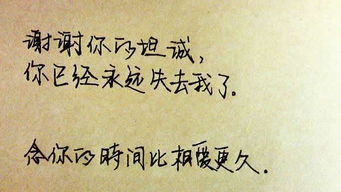 谢谢你的坦诚,
你已经永远失去我了.
念你的時间比相爱更久.